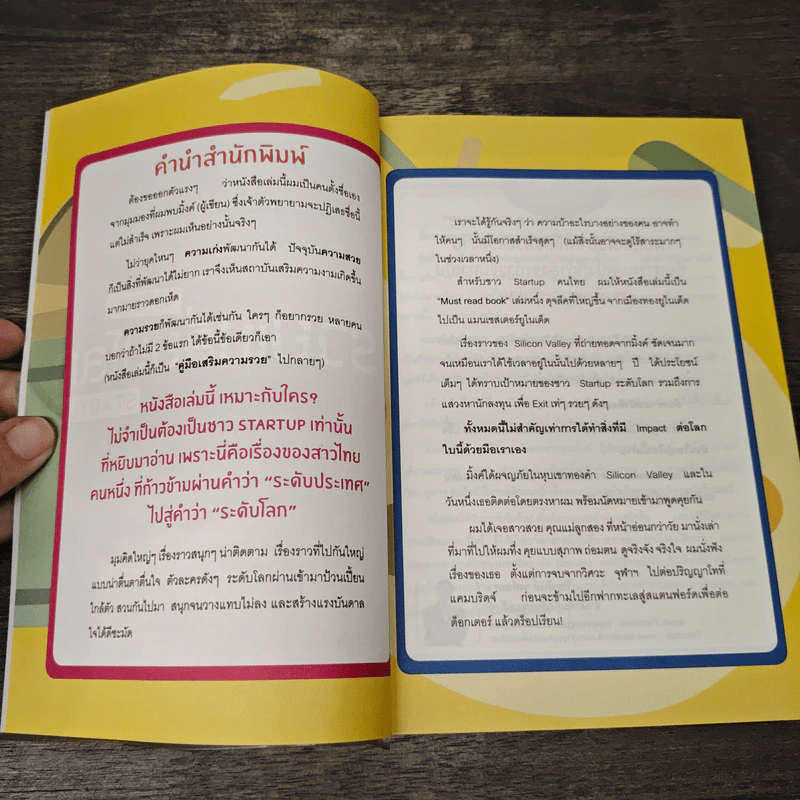 คำนำสำนักพิมพ์
ต้องขอออกตัวแรงๆ ว่าหนังสือเล่มนี้ผมเป็นคนตั้งชื่อเอง
จากมุมมองที่ผมพบมิ้งค์ (ผู้เขียน) ซึ่งเจ้าตัวพยายามจะปฏิเสธชื่อนี้
แต่ไม่สำเร็จ เพราะผมเห็นอย่างนั้นจริงๆ
ไม่ว่ายุคไหนๆ ความเก่งพัฒนากันได้ ปัจจุบันความสวย
ก็เป็นสิ่งที่พัฒนาได้ไม่ยาก เราจึงเห็นสถาบันเสริมความงามเกิดขึ้น
มากมายราวดอกเห็ด
ความรวยก็พัฒนากันได้เช่นกัน ใครๆ ก็อยากรวย หลายคน
บอกว่าถ้าไม่มี 2 ข้อแรก ได้ข้อนี้ข้อเดียวก็เอา
(หนังสือเล่มนี้ก็เป็น "คู่มือเสริมความรวย" ไปกลายๆ)
หนังสือเล่มนี้ เหมาะกับใคร?
ไม่จำเป็นต้องเป็นชาว STARTUP เท่านั้น
ที่หยิบมาอ่าน เพราะนี่คือเรื่องของสาวไทย
คนหนึ่ง ที่ก้าวข้ามผ่านคำว่า "ระดับประเทศ"
ไปสู่คำว่า "ระดับโลก"
มุมคิดใหญ่ๆ เรื่องราวสนุกๆ น่าติดตาม เรื่องราวที่ไปกันใหญ่
แบบน่าตื่นตาตื่นใจ ตัวละครดังๆ ระดับโลกผ่านเข้ามาป้วนเปี้ยน
ใกล้ตัว สวนกันไปมา สนุกจนวางแทบไม่ลง และสร้างแรงบันดาล
ใจได้ดีชะมัด
เราจะได้รู้กันจริงๆ ว่า ความบ้าอะไรบางอย่างของคน อาจทำ
ให้คนๆ นั้นมีโอกาสสำเร็จสุดๆ (แม้สิ่งนั้นอาจจะดูไร้สาระมากๆ
ในช่วงเวลาหนึ่ง)
สำหรับชาว Startup คนไทย ผมให้หนังสือเล่มนี้เป็น
"Must read book" เล่มหนึ่ง ดุจลีคที่ใหญ่ขึ้น จากเมืองทองยูไนเต็ด
ไปเป็น แมนเชสเตอร์ยูไนเต็ด
เรื่องราวของ Silicon Valley ที่ถ่ายทอดจากมิ้งค์ ชัดเจนมาก
จนเหมือนเราได้ใช้เวลาอยู่ในนั้นไปด้วยหลายๆ ปี ได้ประโยชน์
เต็มๆ ได้ทราบเป้าหมายของชาว Startup ระดับโลก รวมถึงการ
แสวงหานักลงทุน เพื่อ Exit เท่ๆ รวยๆ ดังๆ
ทั้งหมดนี้ไม่สำคัญเท่าการได้ทำสิ่งที่มี Impact ต่อโลก
ใบนี้ด้วยมือเราเอง
มิ้งค์ได้ผจญภัยในหุบเขาทองคำ Silicon Valley และใน
วันหนึ่งเธอติดต่อโดยตรงหาผม พร้อมนัดหมายเข้ามาพูดคุยกัน
ผมได้เจอสาวสวย คุณแม่ลูกสอง ที่หน้าอ่อนกว่าวัย มานั่งเล่า
ที่มาที่ไปให้ผมทึ่ง คุยแบบสุภาพ ถ่อมตน ดูจริงจัง จริงใจ ผมนั่งฟัง
เรื่องของเธอ ตั้งแต่การจบจากวิศวะ จุฬาฯ ไปต่อปริญญาโทที่
แคมบริดจ์ ก่อนจะข้ามไปอีกฟากทะเลสู่สแตนฟอร์ดเพื่อต่อ
ด็อกเตอร์ แล้วดร็อปเรียน!